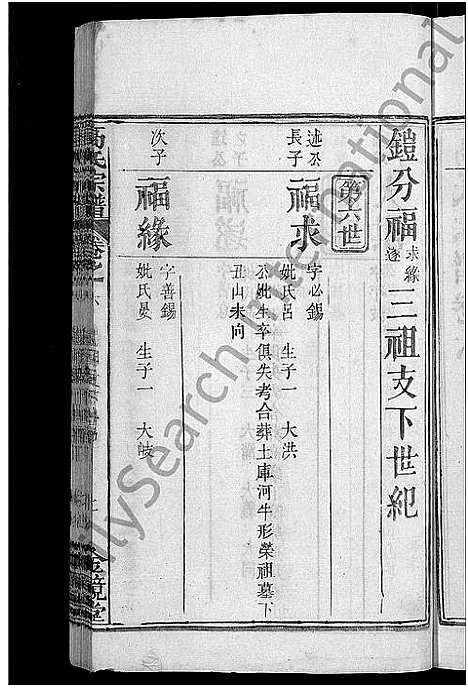 鎧分福求緣遂三祖支下世紀
第六世
述丕長子
福求
字必錫
妣氏呂 生子一 大洪
公妣生卒俱失考合葬土庫河牛形榮祖墓下
丑山未向
次子
福緣
字善錫
妣氏晏 生子一 大鼓
高氏宗譜
卷之一
金鏡堂
FamilySearch International